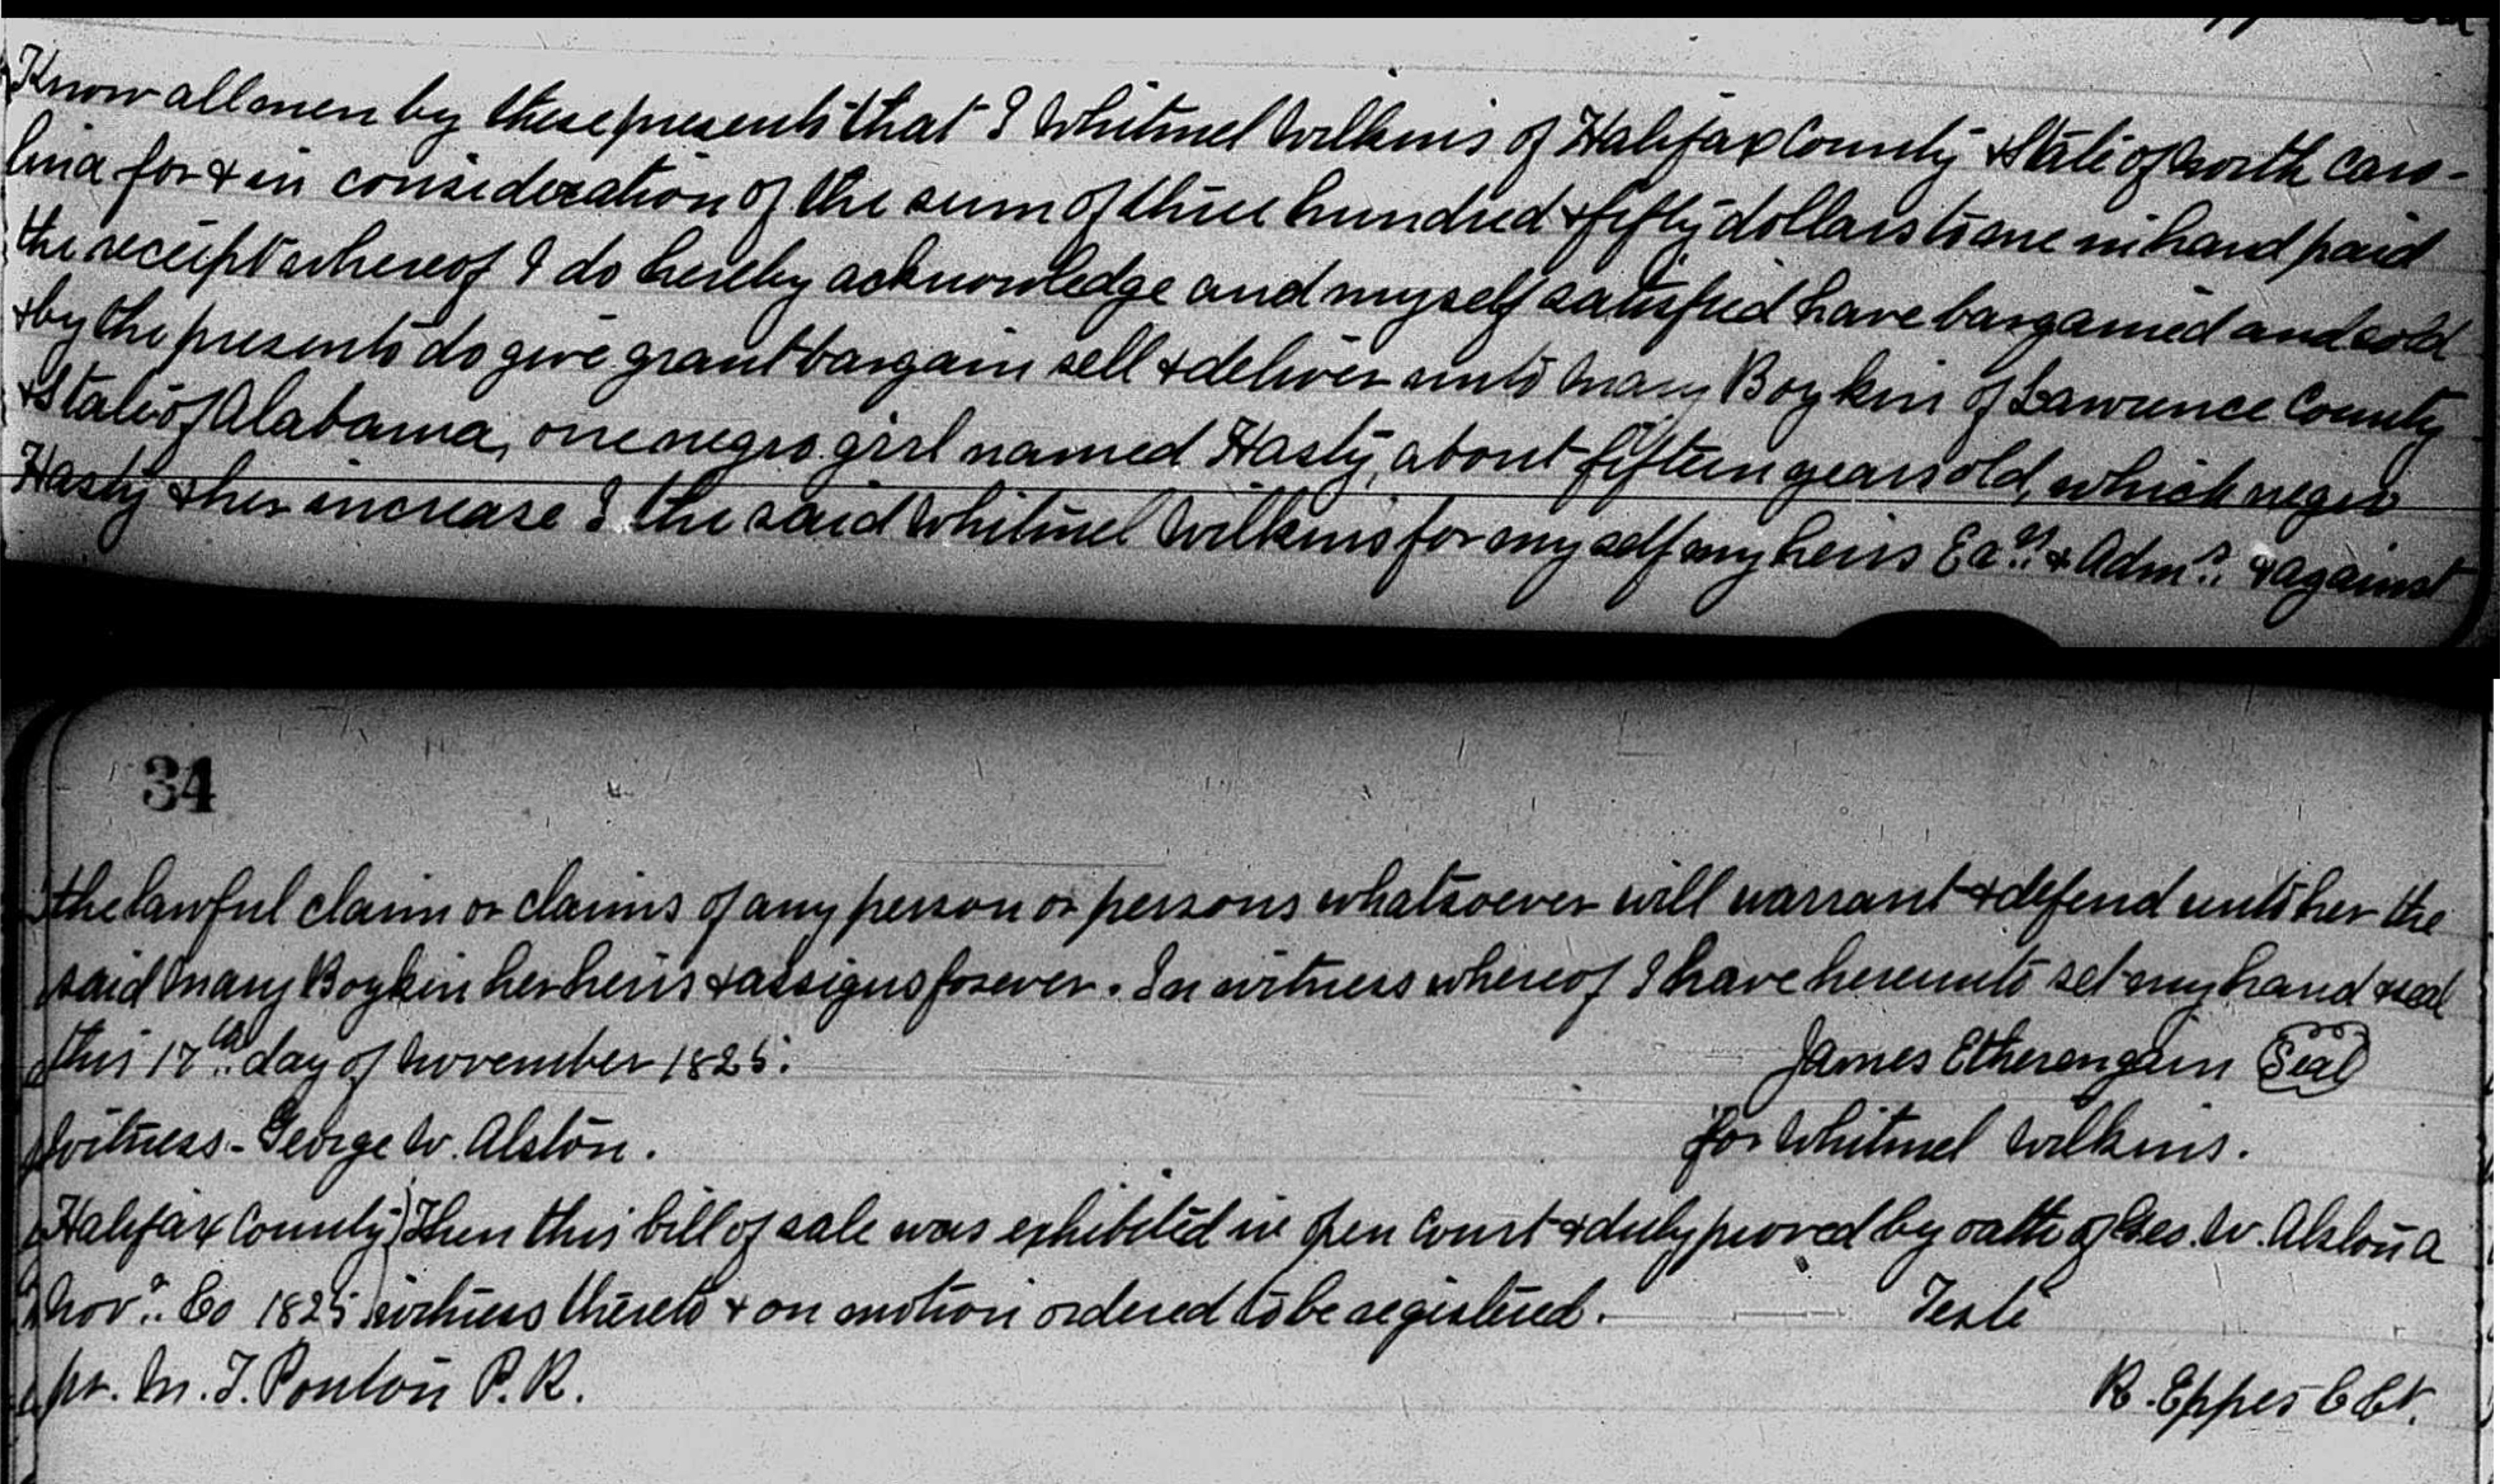 Know all men by these presents that I Whitmel Wilkins of Halifax County & State of North Caro-
lina for & in consideration of the sum of three hundred & fifty dollars to me in hand paid
the receipt whereof I do hereby acknowledge and myself satisfied have bargained and sold
& by the presents do give grant bargain sell & deliver unto Mary Boykin of Lawrence County
& State of Alabama, one negro girl named Hasty, about fifteen years old, which negro
Hasty & her increase I the said Whitmel Wilkins for my self my heirs Exrs. & Admrs. & against
34
the lawful claim or claims of any person or persons whatsoever will warrant & defend unto her the
said Mary Boykin her heirs & assigns forever. In witness whereof I have hereunto set my hand & seal
this 17th day of November 1825. James Etherengain Seal
Witness - George W. Alston. for Whitmel Wilkins.
Halifax County) Then this bill of sale was exhibited in open Court & duly proved by oath of Geo. W. Alston a
Novr. Co 1825) witness thereto & on motion ordered to be registered. Teste
pr. M. T. Ponton P. R. R. Eppes C Ct.